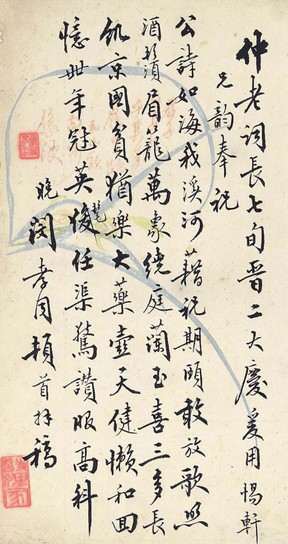 仲老詞長七旬晋二大慶爰用惕軒
兄韵奉祝
公詩如海我溪河藉祝期頤敢放歌照
酒鬚眉籠萬象繞庭蘭玉喜三多長
飢京國貧猶樂大藥壺天健懶和回
憶卅年冠英俊任渠驚讚服高科
晚閔孝同頓首拜稿